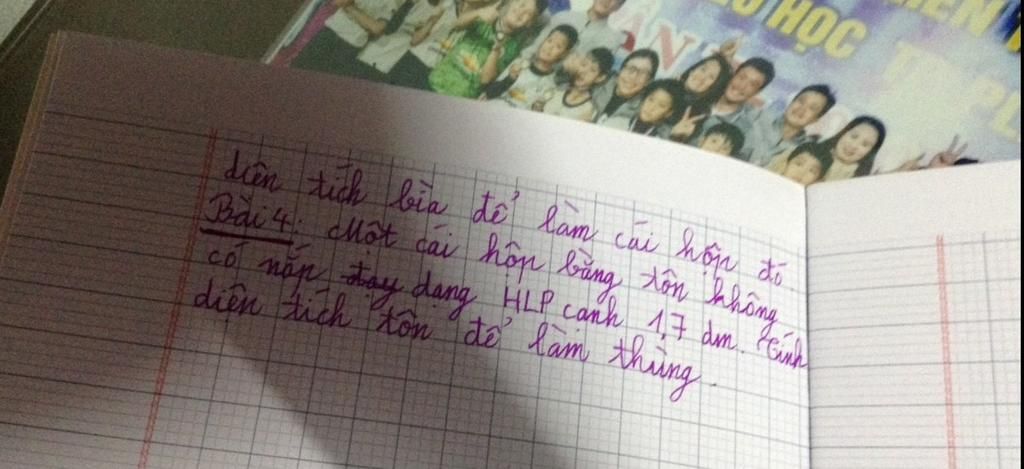 HỌC
diện tích bìa để làm cái hộp đó.
Bài 4: Một cái hộp bằng tôn không
có nắp đạy dạng HLP cạnh 1,7 dm. Tính
diện tích tôn để làm thùng.